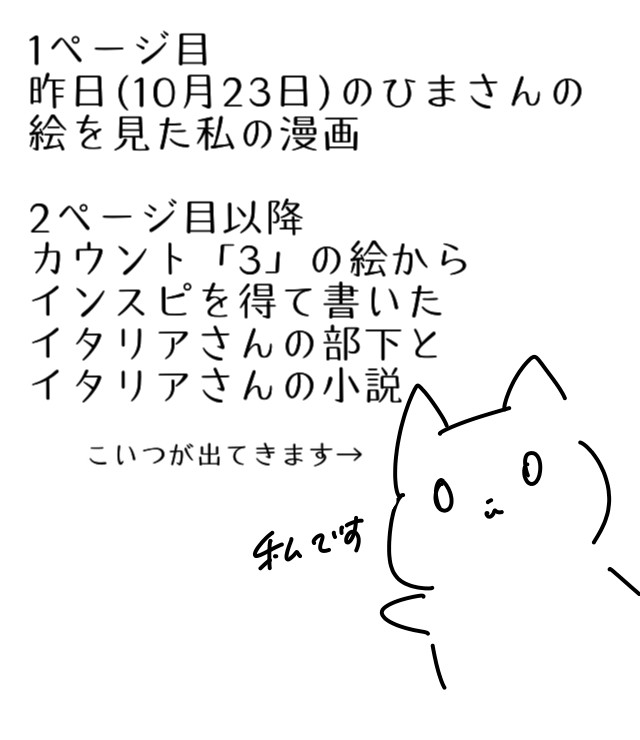 1ページ目
昨日(10月23日)のひまさんの
絵を見た私の漫画
2ページ目以降
カウント「3」の絵から
インスピを得て書いた
イタリアさんの部下と
イタリアさんの小説
こいつが出てきます→
私です